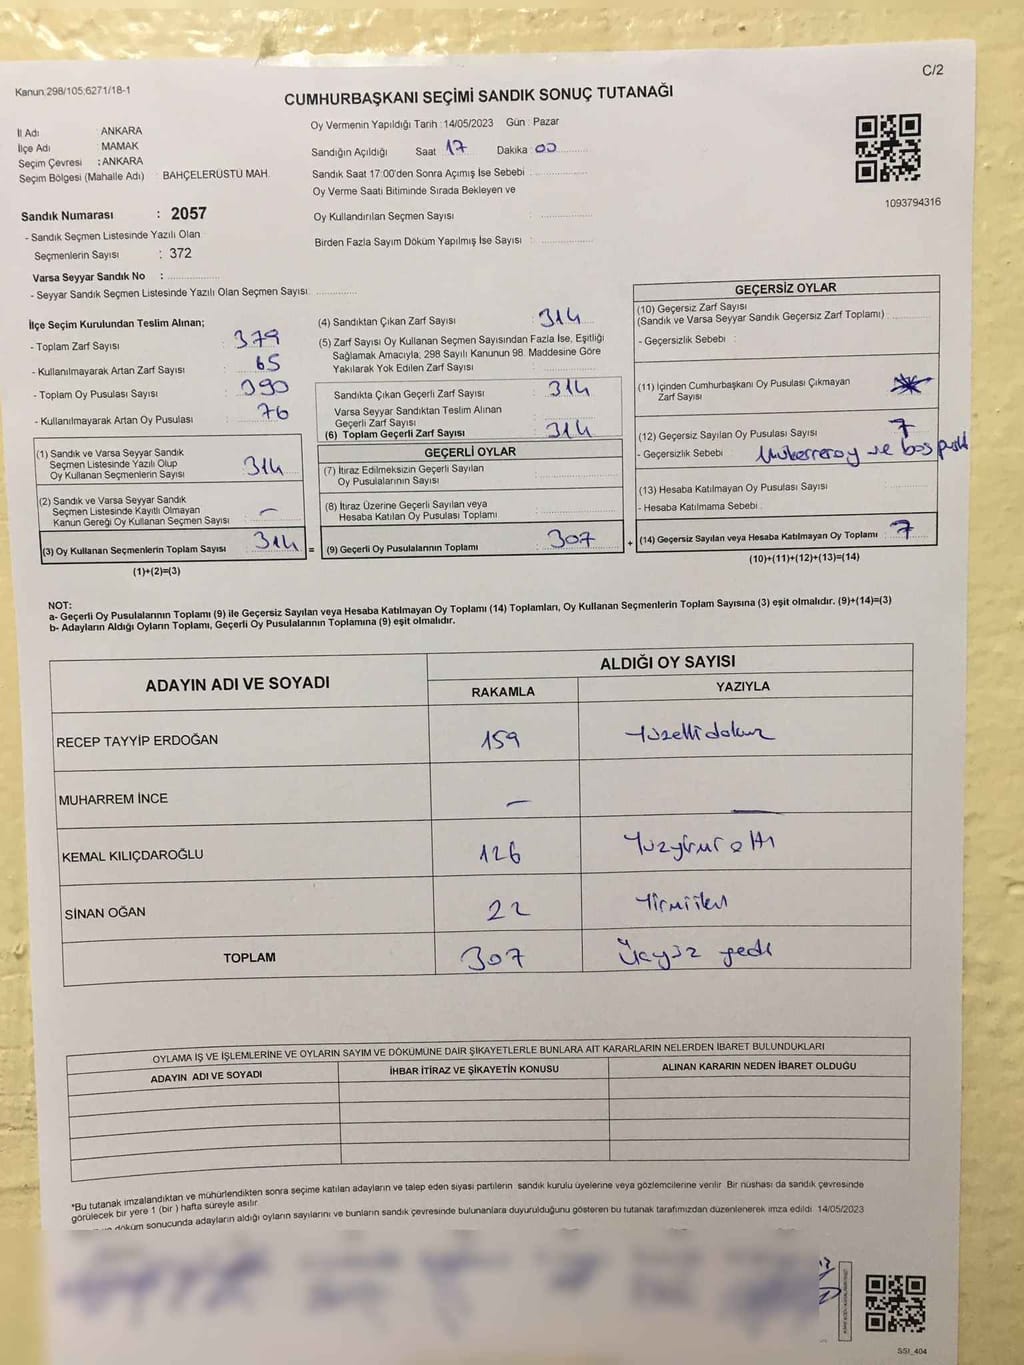 C/2
Kanun.298/105;6271/18-1
CUMHURBAŞKANI SEÇİMİ SANDIK SONUÇ TUTANAĞI
İl Adı : ANKARA
İlçe Adı : MAMAK
Seçim Çevresi : ANKARA
Seçim Bölgesi (Mahalle Adı) : BAHÇELERÜSTÜ MAH.
Oy Vermenin Yapıldığı Tarih : 14/05/2023 Gün : Pazar
Sandığın Açıldığı Saat 17 Dakika 00
Sandık Saat 17:00'den Sonra Açımış İse Sebebi :
Oy Verme Saati Bitiminde Sırada Bekleyen ve
Oy Kullandırılan Seçmen Sayısı :
Birden Fazla Sayım Döküm Yapılmış İse Sayısı :
1093794316
Sandık Numarası : 2057
- Sandık Seçmen Listesinde Yazılı Olan
Seçmenlerin Sayısı : 372
Varsa Seyyar Sandık No :
- Seyyar Sandık Seçmen Listesinde Yazılı Olan Seçmen Sayısı:
İlçe Seçim Kurulundan Teslim Alınan;
- Toplam Zarf Sayısı : 379
- Kullanılmayarak Artan Zarf Sayısı : 65
- Toplam Oy Pusulası Sayısı : 390
- Kullanılmayarak Artan Oy Pusulası : 76
(1) Sandık ve Varsa Seyyar Sandık
Seçmen Listesinde Yazılı Olup
Oy Kullanan Seçmenlerin Sayısı : 314
(2) Sandık ve Varsa Seyyar Sandık
Seçmen Listesinde Kayıtlı Olmayan
Kanun Gereği Oy Kullanan Seçmen Sayısı : -
(3) Oy Kullanan Seçmenlerin Toplam Sayısı : 314 =
(1)+(2)=(3)
(4) Sandıktan Çıkan Zarf Sayısı : 314
(5) Zarf Sayısı Oy Kullanan Seçmen Sayısından Fazla İse, Eşitliği
Sağlamak Amacıyla, 298 Sayılı Kanunun 98. Maddesine Göre
Yakılarak Yok Edilen Zarf Sayısı :
Sandıkta Çıkan Geçerli Zarf Sayısı : 314
Varsa Seyyar Sandıktan Teslim Alınan
Geçerli Zarf Sayısı :
(6) Toplam Geçerli Zarf Sayısı : 314
GEÇERLİ OYLAR
(7) İtiraz Edilmeksizin Geçerli Sayılan
Oy Pusulalarının Sayısı :
(8) İtiraz Üzerine Geçerli Sayılan veya
Hesaba Katılan Oy Pusulası Toplamı :
(9) Geçerli Oy Pusulalarının Toplamı : 307 +
GEÇERSİZ OYLAR
(10) Geçersiz Zarf Sayısı
(Sandık ve Varsa Seyyar Sandık Geçersiz Zarf Toplamı) :
- Geçersizlik Sebebi :
(11) İçinden Cumhurbaşkanı Oy Pusulası Çıkmayan
Zarf Sayısı :
(12) Geçersiz Sayılan Oy Pusulası Sayısı : 7
- Geçersizlik Sebebi : Mükerrer oy ve boş pusula
(13) Hesaba Katılmayan Oy Pusulası Sayısı :
- Hesaba Katılmama Sebebi :
(14) Geçersiz Sayılan veya Hesaba Katılmayan Oy Toplamı : 7
(10)+(11)+(12)+(13)=(14)
NOT:
a- Geçerli Oy Pusulalarının Toplamı (9) ile Geçersiz Sayılan veya Hesaba Katılmayan Oy Toplamı (14) Toplamları, Oy Kullanan Seçmenlerin Toplam Sayısına (3) eşit olmalıdır. (9)+(14)=(3)
b- Adayların Aldığı Oyların Toplamı, Geçerli Oy Pusulalarının Toplamına (9) eşit olmalıdır.
ADAYIN ADI VE SOYADI ALDIĞI OY SAYISI
RAKAMLA YAZIYLA
RECEP TAYYİP ERDOĞAN 159 Yüzellidokuz
MUHARREM İNCE - -
KEMAL KILIÇDAROĞLU 126 Yüzyirmi altı
SİNAN OĞAN 22 Yirmiiki
TOPLAM 307 Üçyüz yedi
OYLAMA İŞ VE İŞLEMLERİNE VE OYLARIN SAYIM VE DÖKÜMÜNE DAİR ŞİKAYETLERLE BUNLARA AİT KARARLARIN NELERDEN İBARET BULUNDUKLARI
ADAYIN ADI VE SOYADI İHBAR İTİRAZ VE ŞİKAYETİN KONUSU ALINAN KARARIN NEDEN İBARET OLDUĞU
*Bu tutanak imzalandıktan ve mühürlendikten sonra seçime katılan adayların ve talep eden siyasi partilerin sandık kurulu üyelerine veya gözlemcilerine verilir. Bir nüshası da sandık çevresinde
görülecek bir yere 1 (bir ) hafta süreyle asılır.
döküm sonucunda adayların aldığı oyların sayılarını ve bunların sandık çevresinde bulunanlara duyurulduğunu gösteren bu tutanak tarafımızdan düzenlenerek imza edildi. 14/05/2023
SSI_404